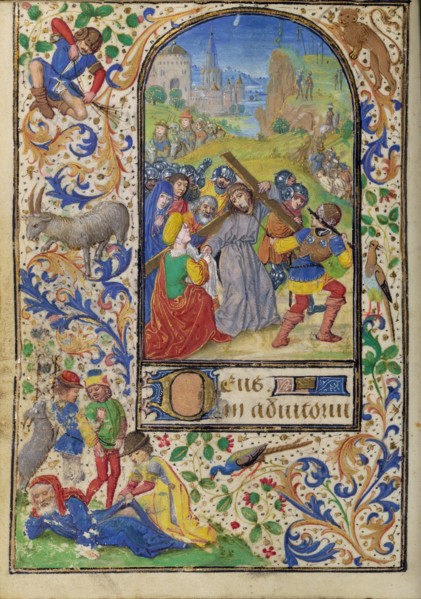 Deus
in adiutoriu